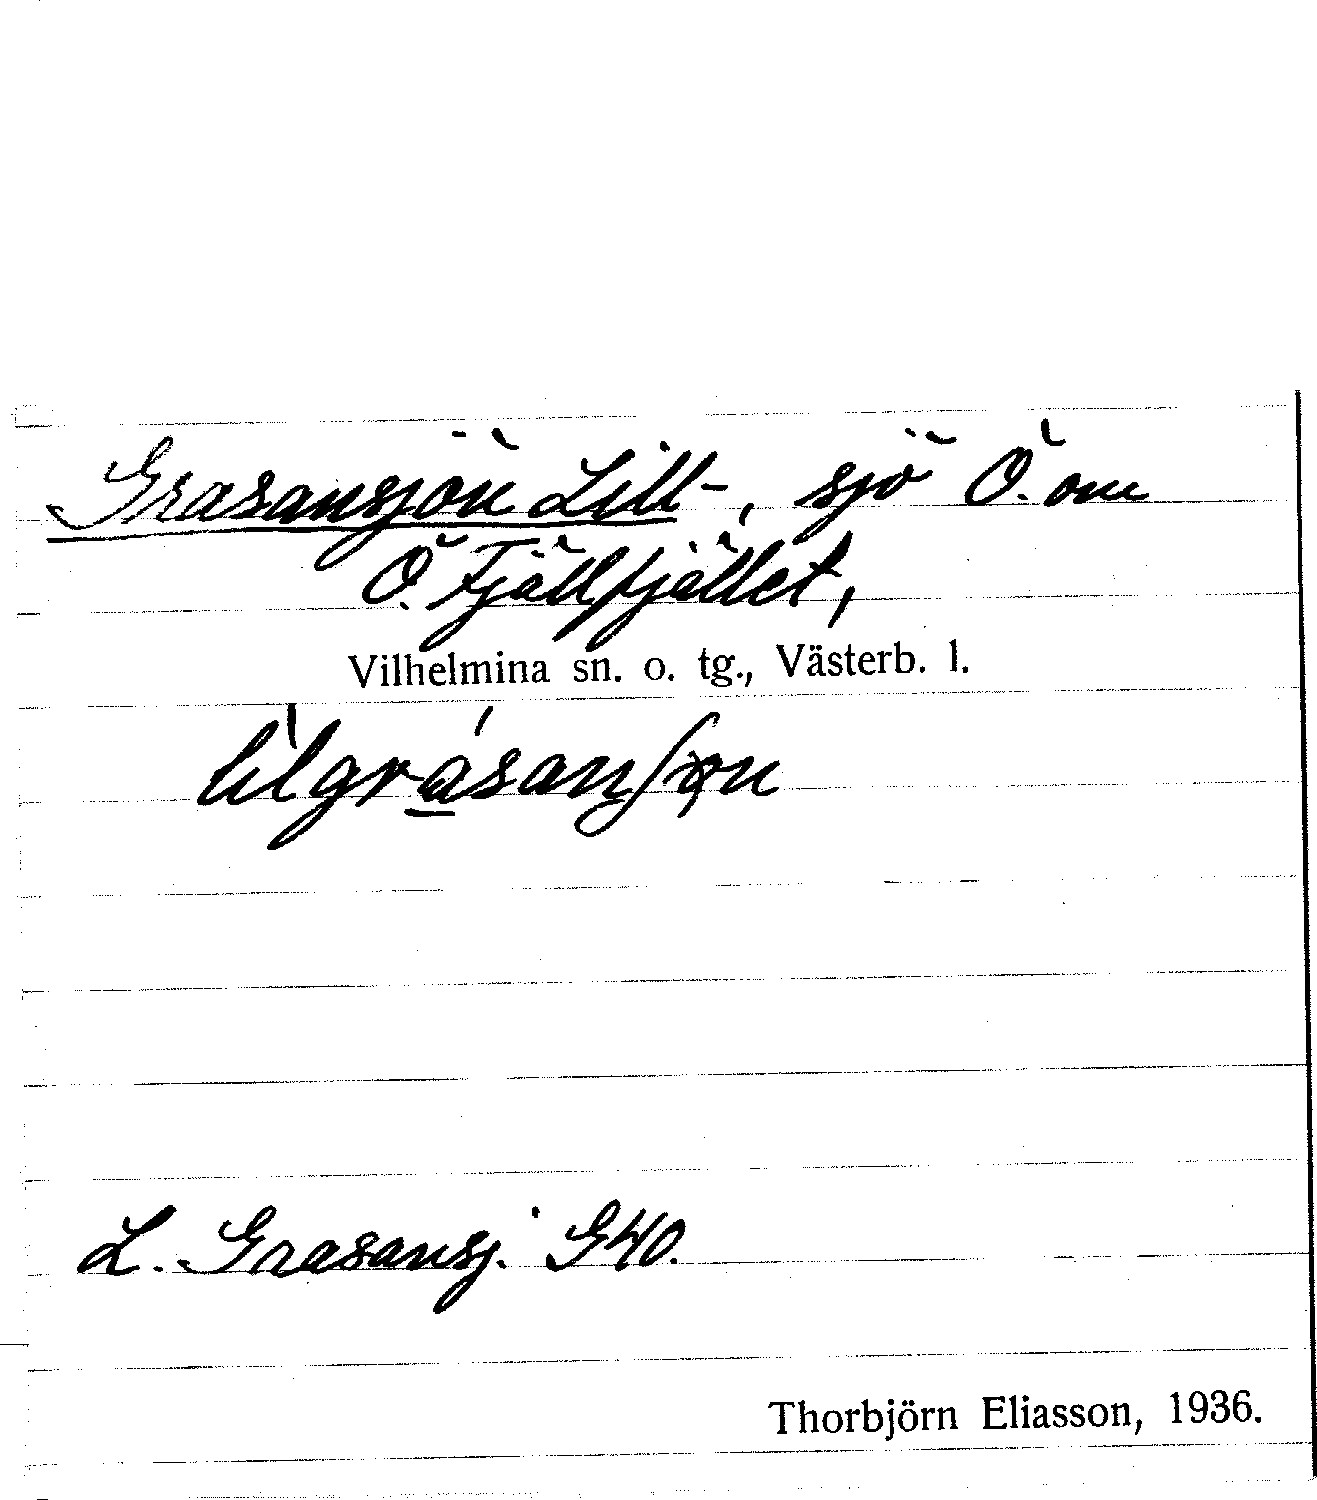 Grasansjön Lill-, sjö Ö. om
Ö. Fjällfjället,
Vilhelmina sn. o. tg., Västerb. l.
L. Grasansj. G40.
Thorbjörn Eliasson, 1936.